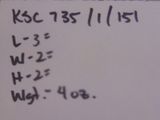 KSC 735/1/151
L-3"
W-2"
H-2"
Wgt.- 4 oz.